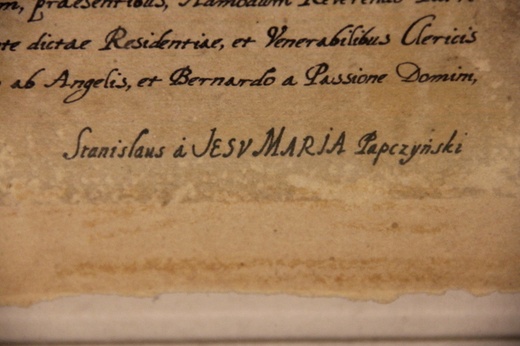 praesentibus, Admodum Reverendo
dictae Residentiae, et Venerabilibus Clericis
ab Angelis, et Bernardo a Passione Domini,
Stanislaus á JESV MARIA Papczyński